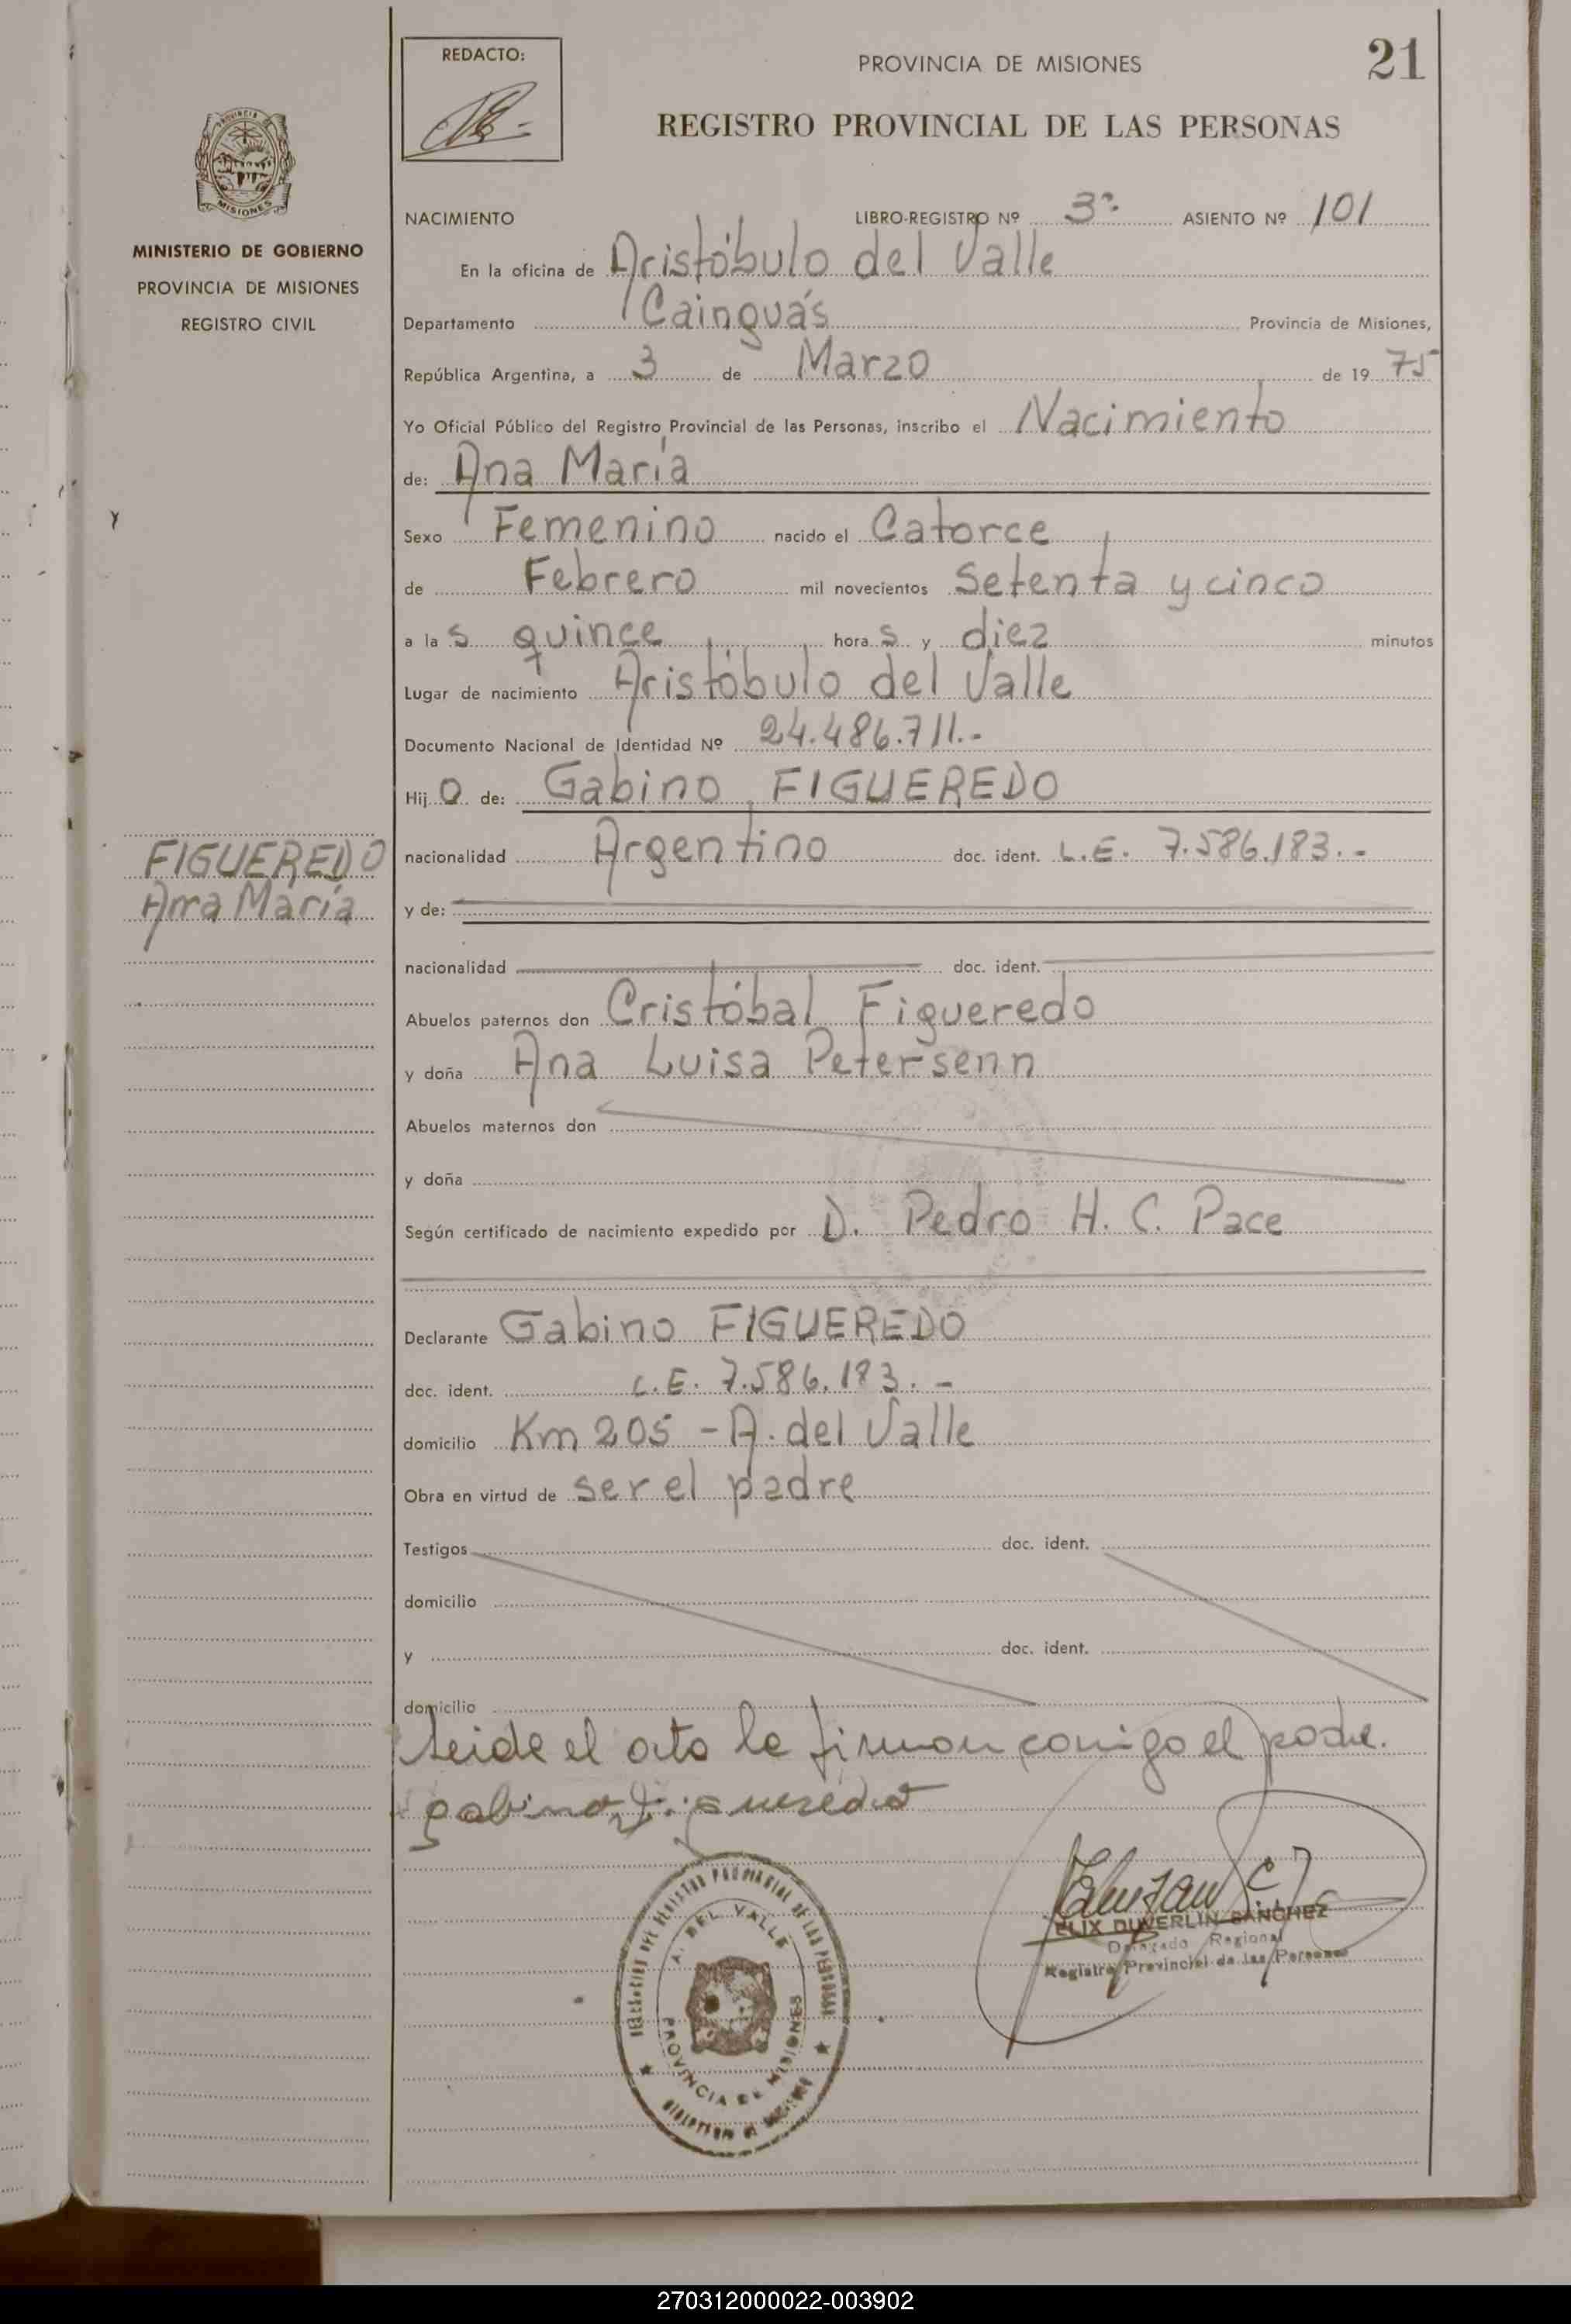 REDACTO:
PROVINCIA DE MISIONES
21
REGISTRO PROVINCIAL DE LAS PERSONAS
PROVINCIA DE
MISIONES
MINISTERIO DE GOBIERNO
PROVINCIA DE MISIONES
REGISTRO CIVIL
NACIMIENTO LIBRO-REGISTRO Nº 3º ASIENTO Nº 101
En la oficina de Aristóbulo del Valle
Departamento Cainguás Provincia de Misiones,
República Argentina, a 3 de Marzo de 19 75
Yo Oficial Público del Registro Provincial de las Personas, inscribo el Nacimiento
de: Ana María
Sexo Femenino nacido el Catorce
de Febrero mil novecientos Setenta y cinco
a la s quince hora s y diez minutos
Lugar de nacimiento Aristóbulo del Valle
Documento Nacional de Identidad Nº 24.486.711.-
Hij o de: Gabino FIGUEREDO
nacionalidad Argentino doc. ident. L.E. 7.586.183.-
FIGUEREDO
Ana María
y de:
nacionalidad doc. ident.
Abuelos paternos don Cristóbal Figueredo
y doña Ana Luisa Petersenn
Abuelos maternos don
y doña
Según certificado de nacimiento expedido por D. Pedro H. C. Pace
Declarante Gabino FIGUEREDO
doc. ident. L.E. 7.586.183.-
domicilio Km 205 - A. del Valle
Obra en virtud de ser el padre
Testigos doc. ident.
domicilio
y doc. ident.
domicilio
Leida el acta la firman conmigo el padre.
gabino figueredo
DELEGACION DEL REGISTRO PROVINCIAL DE LAS PERSONAS
A. DEL VALLE
PROVINCIA DE MISIONES
MINISTERIO DE GOBIERNO
FELIX DUVERLIN SANCHEZ
Delegado Regional
Registro Provincial de las Personas
270312000022-003902